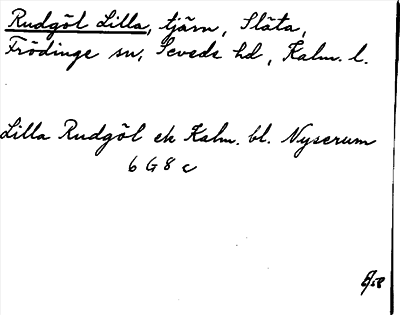 Rudgöl Lilla, tjärn, Släta,
Frödinge sn, Sevede hd, Kalm. l.
Lilla Rudgöl ek Kalm. bl. Nyserum
6 G 8 c